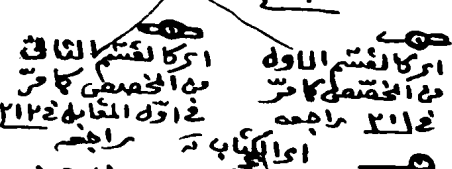 اي كالقسم الاول
من المخصص كما مرّ
راجعه
اي كالقسم الثاني
من المخصص كما مرّ
في اوّل المقابل في ٢١٢
راجعه
اي الكتاب